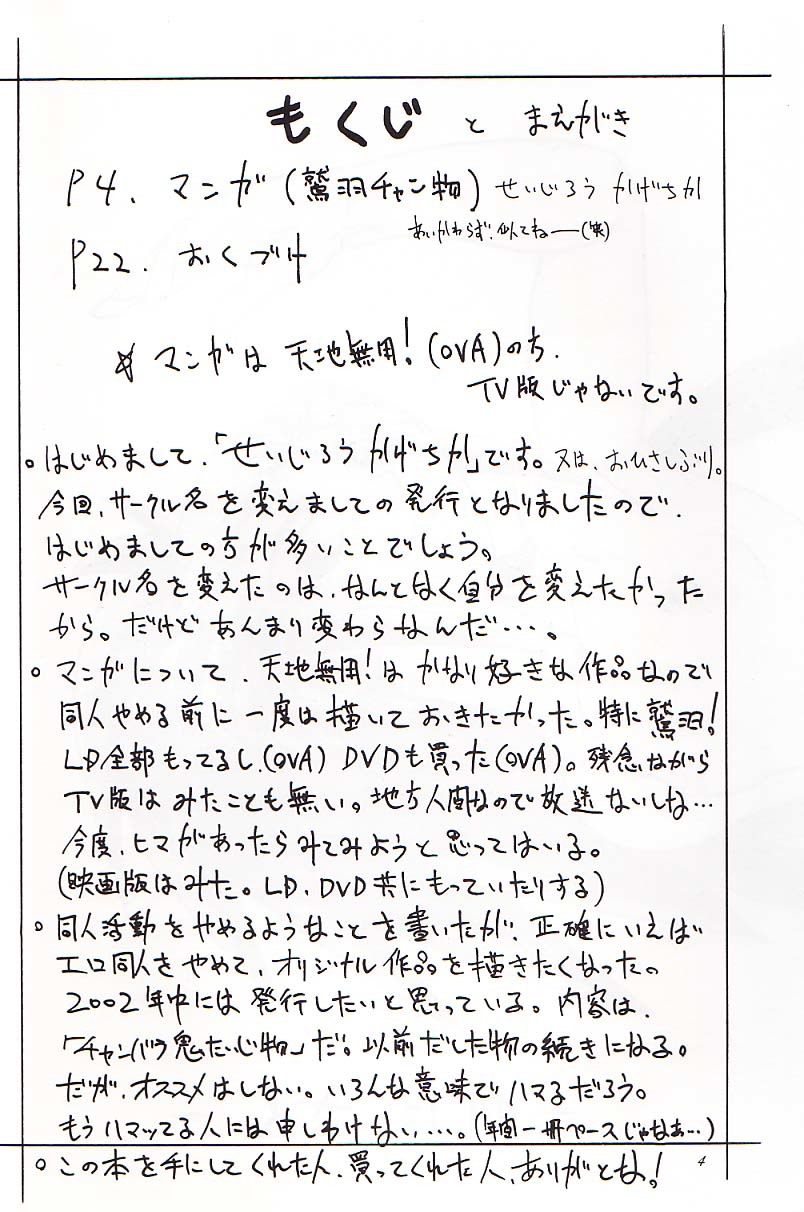 もくじ と まえがき
P4. マンガ(鷲羽チャン物) せいじろう かげちか
あいかわらず、似てねー(笑)
P22. おくづけ
☆ マンガは 天地無用!(OVA)のち.
TV版じゃないです。
○はじめまして.「せいじろう かげちか」です。又は、おひさしぶり。
今回、サークル名を変えましての発行となりましたので、
はじめましての方が多いことでしょう。
サークル名を変えたのは、なんとなく自分を変えたかった
から。だけど あんまり変わらなんだ…。
○ マンガについて、天地無用!は かなり好きな作品なので
同人やめる前に一度は描いておきたかった。特に鷲羽!
LD全部もってるし、(OVA) DVDも買った(OVA)。残念ながら
TV版はみたことも無い。地方人間なので放送ないしな…
今度、ヒマがあったらみてみようと思ってはいる。
(映画版はみた。LD、DVD共にもっていたりする)
○ 同人活動をやめるようなことを書いたが、正確にいえば
エロ同人をやめて、オリジナル作品を描きたくなったの。
2002年中には発行したいと思っている。内容は、
「チャンバラ鬼たいじ物」だ。以前だした物の続きになる。
だが、オススメはしない。いろんな意味でハマるだろう。
もうハマッてる人には申しわけない…。(年間一冊ペースじゃなぁ…)
○ この本を手にしてくれた人、買ってくれた人、ありがとな!
4